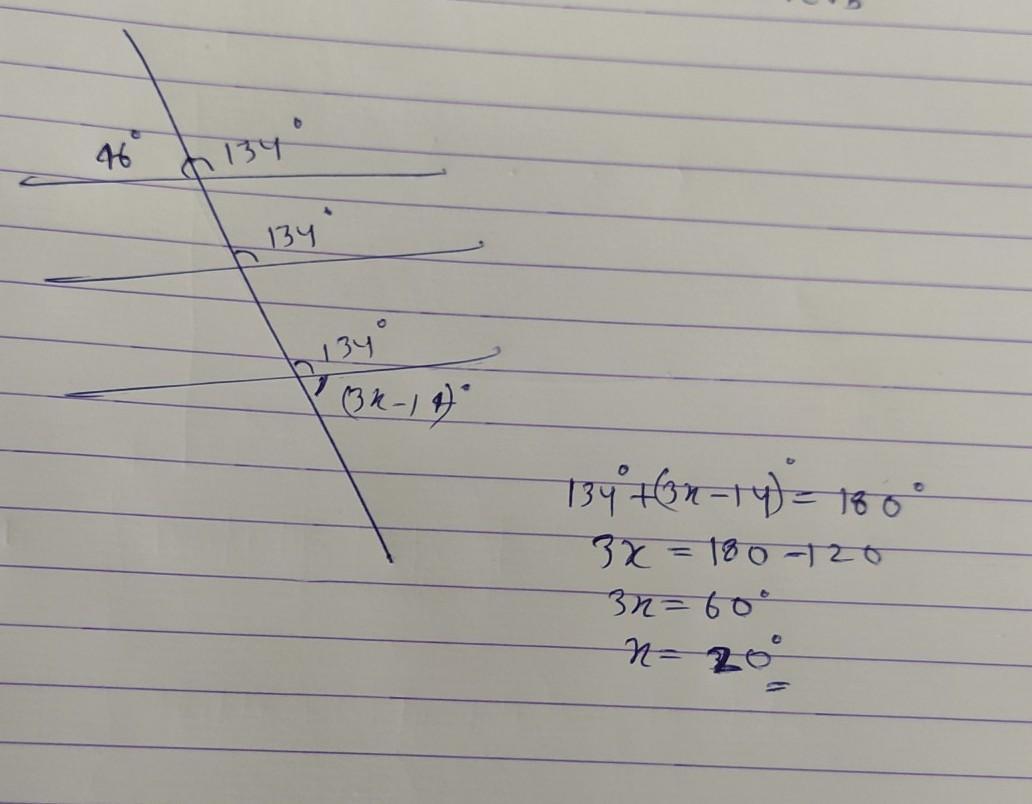 46° 134°
134°
134°
(3x-14)°
134°+(3x-14)°=180°
3x=180-120
3x=60°
x=20°